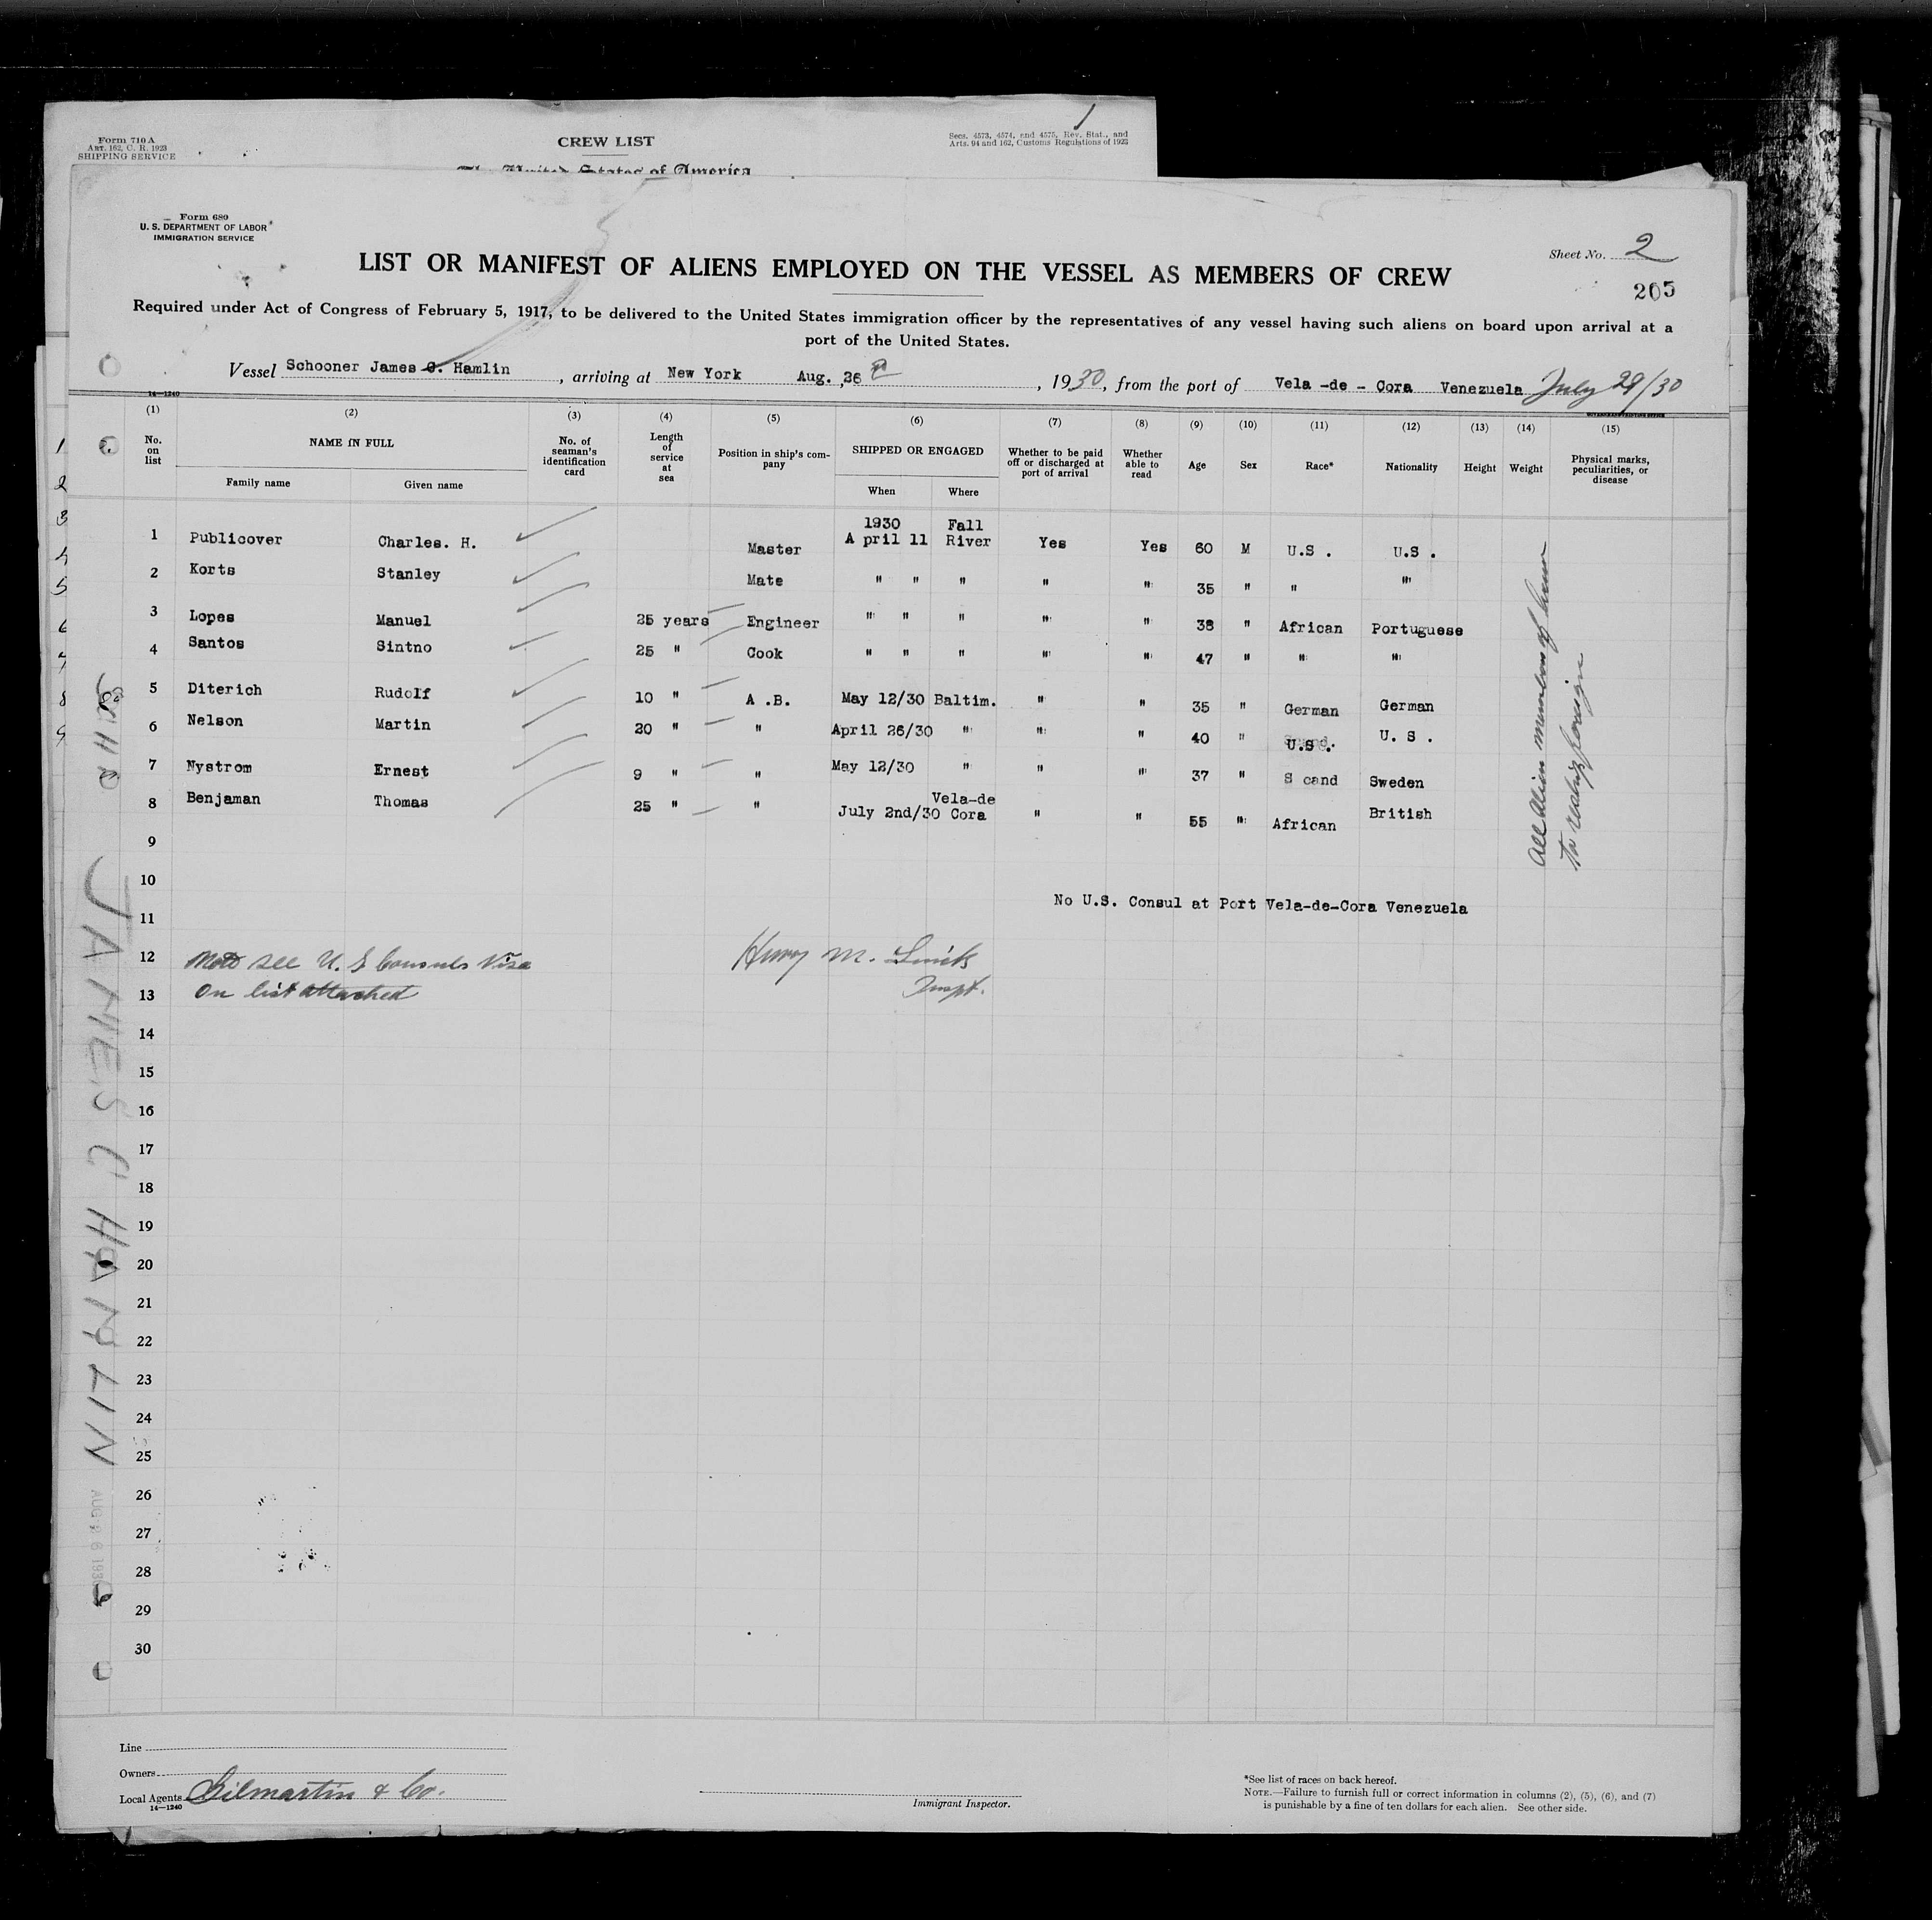 Form 710 A
ART. 162, C. R. 1923
SHIPPING SERVICE
CREW LIST
Secs. 4573, 4574, and 4575, Rev. Stat., and
Arts. 94 and 162, Customs Regulations of 1923
1
The United States of America
Form 680
U. S. DEPARTMENT OF LABOR
IMMIGRATION SERVICE
Sheet No. 2
205
LIST OR MANIFEST OF ALIENS EMPLOYED ON THE VESSEL AS MEMBERS OF CREW
Required under Act of Congress of February 5, 1917, to be delivered to the United States immigration officer by the representatives of any vessel having such aliens on board upon arrival at a
port of the United States.
Vessel Schooner James C. Hamlin, arriving at New York Aug. 26, 1930, from the port of Vela -de - Cora Venezuela July 29/30
14—1240
(1) (2) (3) (4) (5) (6) (7) (8) (9) (10) (11) (12) (13) (14) (15)
No. on list
NAME IN FULL
Family name Given name
No. of seaman's identification card
Length of service at sea
Position in ship's company
SHIPPED OR ENGAGED
When Where
Whether to be paid off or discharged at port of arrival
Whether able to read
Age
Sex
Race*
Nationality
Height
Weight
Physical marks, peculiarities, or disease
1930 Fall
1 Publicover Charles. H. Master A pril 11 River Yes Yes 60 M U.S . U.S .
2 Korts Stanley Mate " " " " " 35 " " "
3 Lopes Manuel 25 years Engineer " " " " " 38 " African Portuguese
4 Santos Sintno 25 " Cook " " " " " 47 " " "
5 Diterich Rudolf 10 " A .B. May 12/30 Baltim. " " 35 " German German
6 Nelson Martin 20 " " April 26/30 " " " 40 " U.S . U. S .
7 Nystrom Ernest 9 " " May 12/30 " " " 37 " S cand Sweden
Vela-de
8 Benjaman Thomas 25 " " July 2nd/30 Cora " " 55 " African British
9
10
No U.S. Consul at Port Vela-de-Cora Venezuela
11
12 Note see U. S Consuls Visa
13 On list attached
Henry M. Smith
Inspt.
14
15
16
17
18
19
20
21
22
23
24
25
26
27
28
29
30
All Alien members of crew
to reship foreign
1
2
3
4
5
6
7
8
9
SCHR JAMES C HAMLIN
AUG 26 1930
Line
Owners
Local Agents Gilmartin & Co.
14—1240
Immigrant Inspector.
*See list of races on back hereof.
NOTE.—Failure to furnish full or correct information in columns (2), (5), (6), and (7)
is punishable by a fine of ten dollars for each alien. See other side.